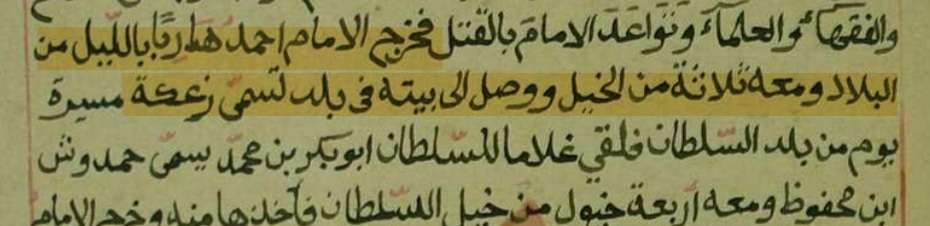 والفقهاء والعلماء وتواعد الامام بالقتل فخرج الامام احمد هاربا بالليل من
البلاد ومعه ثلاثة من الخيل ووصل الى بيته فى بلد تسمى زعكة مسيرة
يوم من بلد السلطان فلقي غلاما للسلطان ابوبكر بن محمد يسمى حمدوش
ابن محفوظ ومعه اربعة خيول من خيل السلطان فآخذها منه وخرج الامام